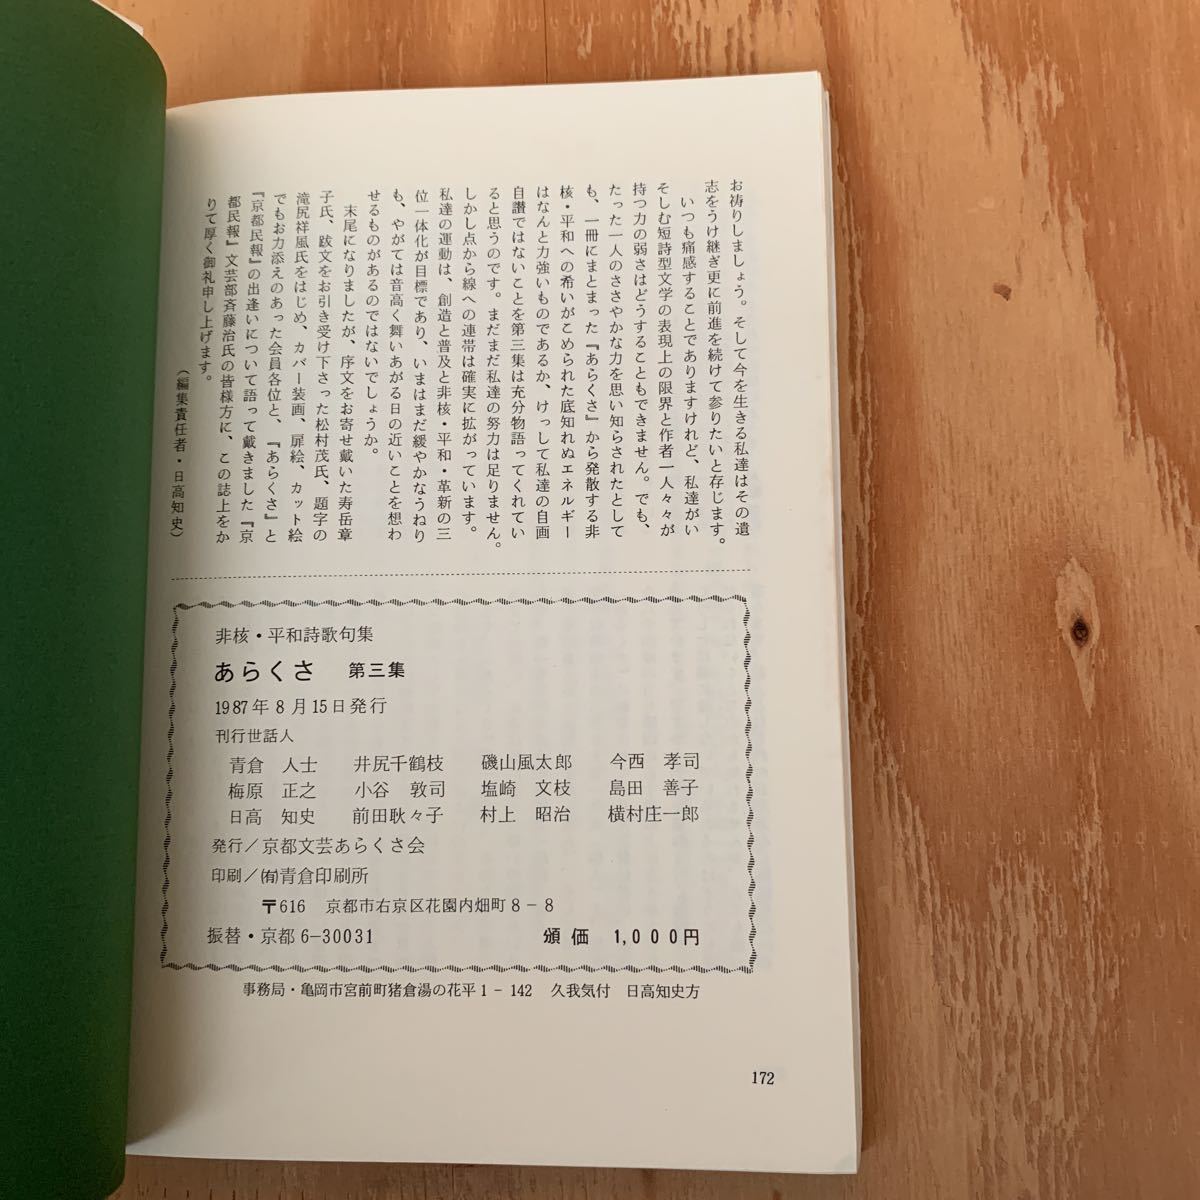 お祈りしましょう。そして今を生きる私達はその遺
志をうけ継ぎ更に前進を続けて参りたいと存じます。
いつも痛感することでありますけれど、私達がい
そしむ短詩型文学の表現上の限界と作者一人々々が
持つ力の弱さはどうすることもできません。でも、
たった一人のささやかな力を思い知らされたとして
も、一冊にまとまった『あらくさ』から発散する非
核・平和への希いがこめられた底知れぬエネルギー
はなんと力強いものであるか、けっして私達の自画
自讃ではないことを第三集は充分物語ってくれてい
ると思うのです。まだまだ私達の努力は足りません。
しかし点から線への連帯は確実に拡がっています。
私達の運動は、創造と普及と非核・平和・革新の三
位一体化が目標であり、いまはまだ緩やかなうねり
も、やがては音高く舞いあがる日の近いことを想わ
せるものがあるのではないでしょうか。
末尾になりましたが、序文をお寄せ戴いた寿岳章
子氏、跋文をお引き受け下さった松村茂氏、題字の
滝尻祥風氏をはじめ、カバー装画、扉絵、カット絵
でもお力添えのあった会員各位と、『あらくさ』と
『京都民報』の出逢いについて語って戴きました『京
都民報』文芸部斉藤治氏の皆様方に、この誌上をか
りて厚く御礼申し上げます。
（編集責任者・日高知史）
非核・平和詩歌句集
あらくさ 第三集
1987年8月15日発行
刊行世話人
青倉 人士 井尻千鶴枝 磯山風太郎 今西 孝司
梅原 正之 小谷 敦司 塩崎 文枝 島田 善子
日高 知史 前田耿々子 村上 昭治 横村庄一郎
発行/京都文芸あらくさ会
印刷/㈲青倉印刷所
〒616 京都市右京区花園内畑町8-8
振替・京都6-30031 頒価 1,000円
事務局・亀岡市宮前町猪倉湯の花平1-142 久我気付 日高知史方
172